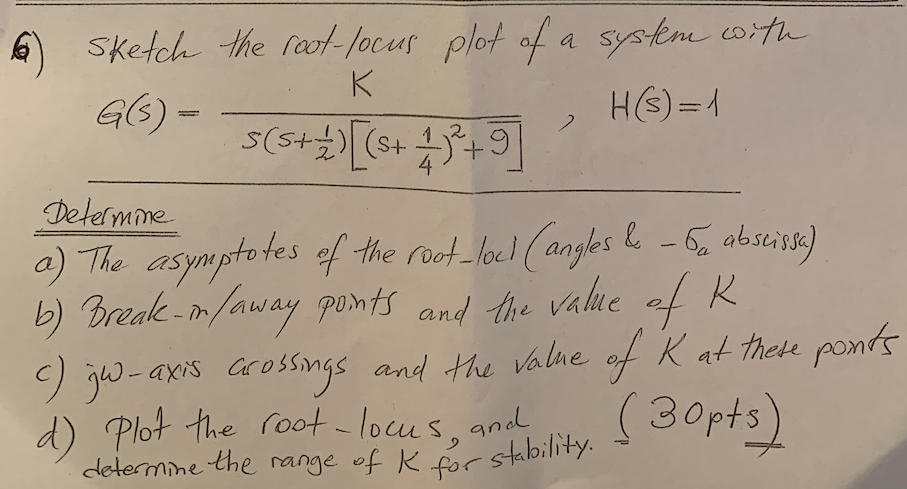 6) Sketch the root-locus plot of a system with
G(s) = K / s(s+1/2)[(s+1/4)²+9] , H(s)=1
Determine
a) The asymptotes of the root-loci (angles & -σₐ abscissa)
b) Break-in/away points and the value of K
c) jw-axis crossings and the value of K at these points
d) Plot the root-locus, and
determine the range of K for stability. (30pts)